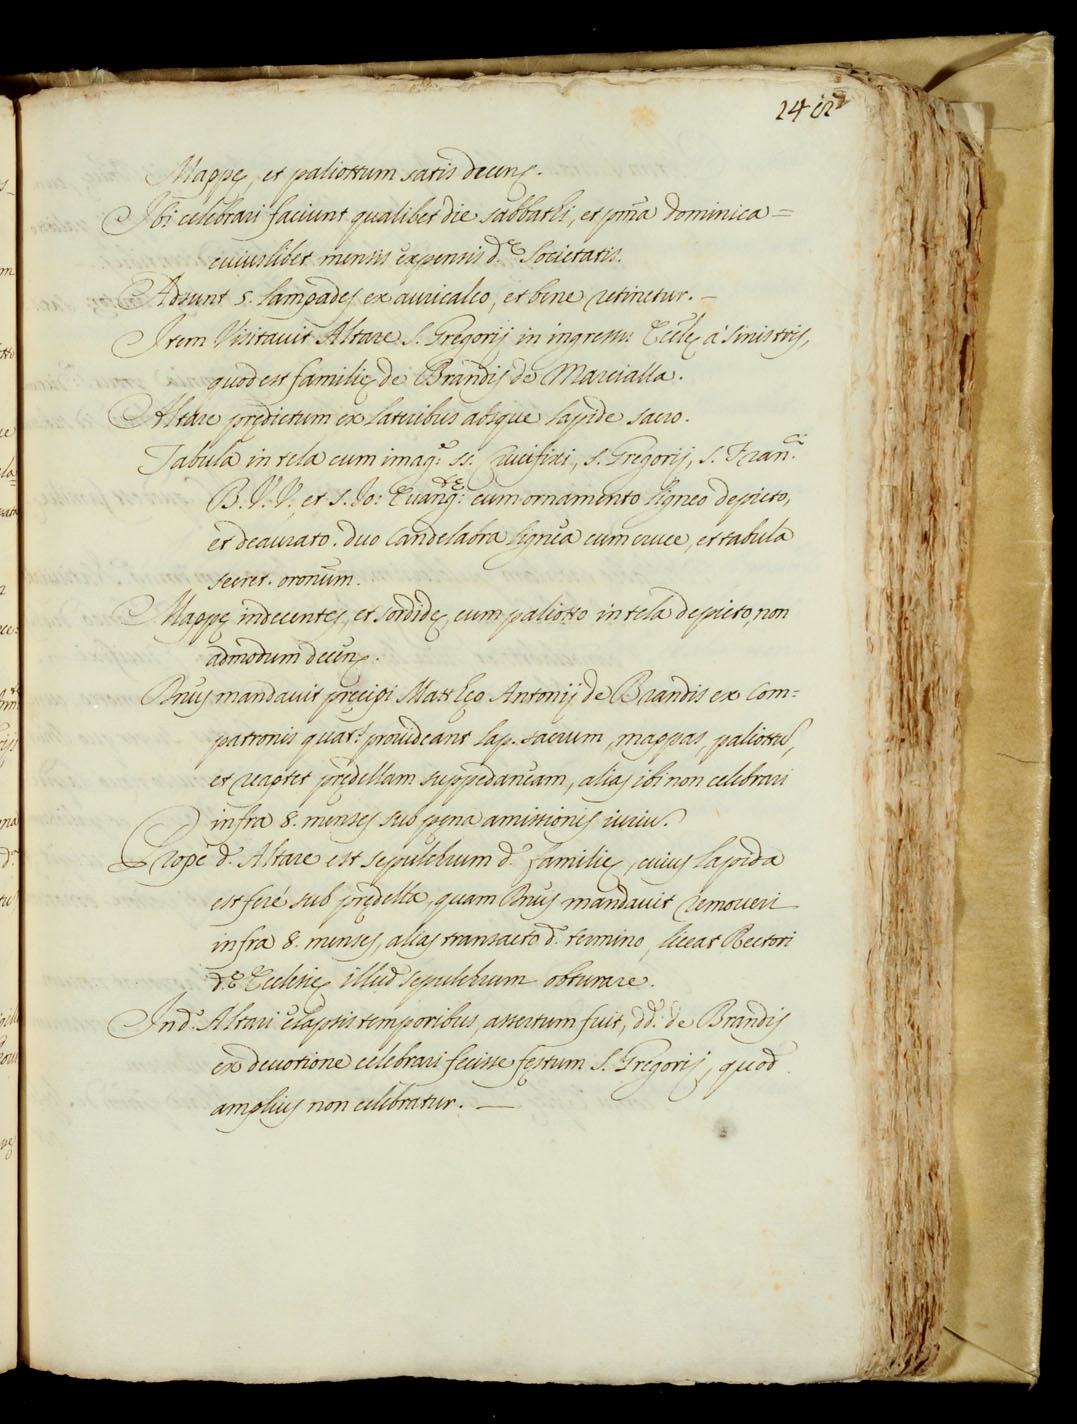 Mappę, et paliottum satis decens.
Ibi celebrari faciunt qualibet die sabbathi, et pma dominica =
cuiuslibet mensis expensis d.e Societatis.
Adsunt 5. lampades ex auricalco, et bene retinetur. —
Item Visitauit Altare S. Gregorij in ingressu Eccle à sinistris,
quod est familię de Brandis de Marcialla.
Altare prędictum ex lateribus absque lapide sacro.
Tabula in tela cum imag: ss. Crucifixi, S. Gregorij, S. Fran.ci
B. V. et S. Io: Euang:tę cum ornamento ligneo depicto,
et deaurato. duo Candelabra lignea cum cruce, et tabula
secret. oronum.
Mappę indecentes, et sordidę, cum paliotto in tela depicto, non
admodum decens.
Dnus mandauit pręcipi Matthęo Antonij de Brandis ex Com=
patronis quat: prouideant lap. sacrum, mappas, paliottu,
et reaptet prędellam suppedaneam, alias ibi non celebrari
infra 8. menses sub pęna amissionis iuriu.
Propè d. Altare est sepulchrum d. familię, cuius lapida
est ferè sub prędella, quam Dnus mandauit remoueri
infra 8. menses, alias transacto d. termino, liceat Rectori
d.ę Ecclesię illud sepulchrum obturare.
In d. Altari elapsis temporibus, assertum fuit, dd. de Brandis
ex deuotione celebrari fecisse festum S. Gregorij, quod
amplius non celebratur. —